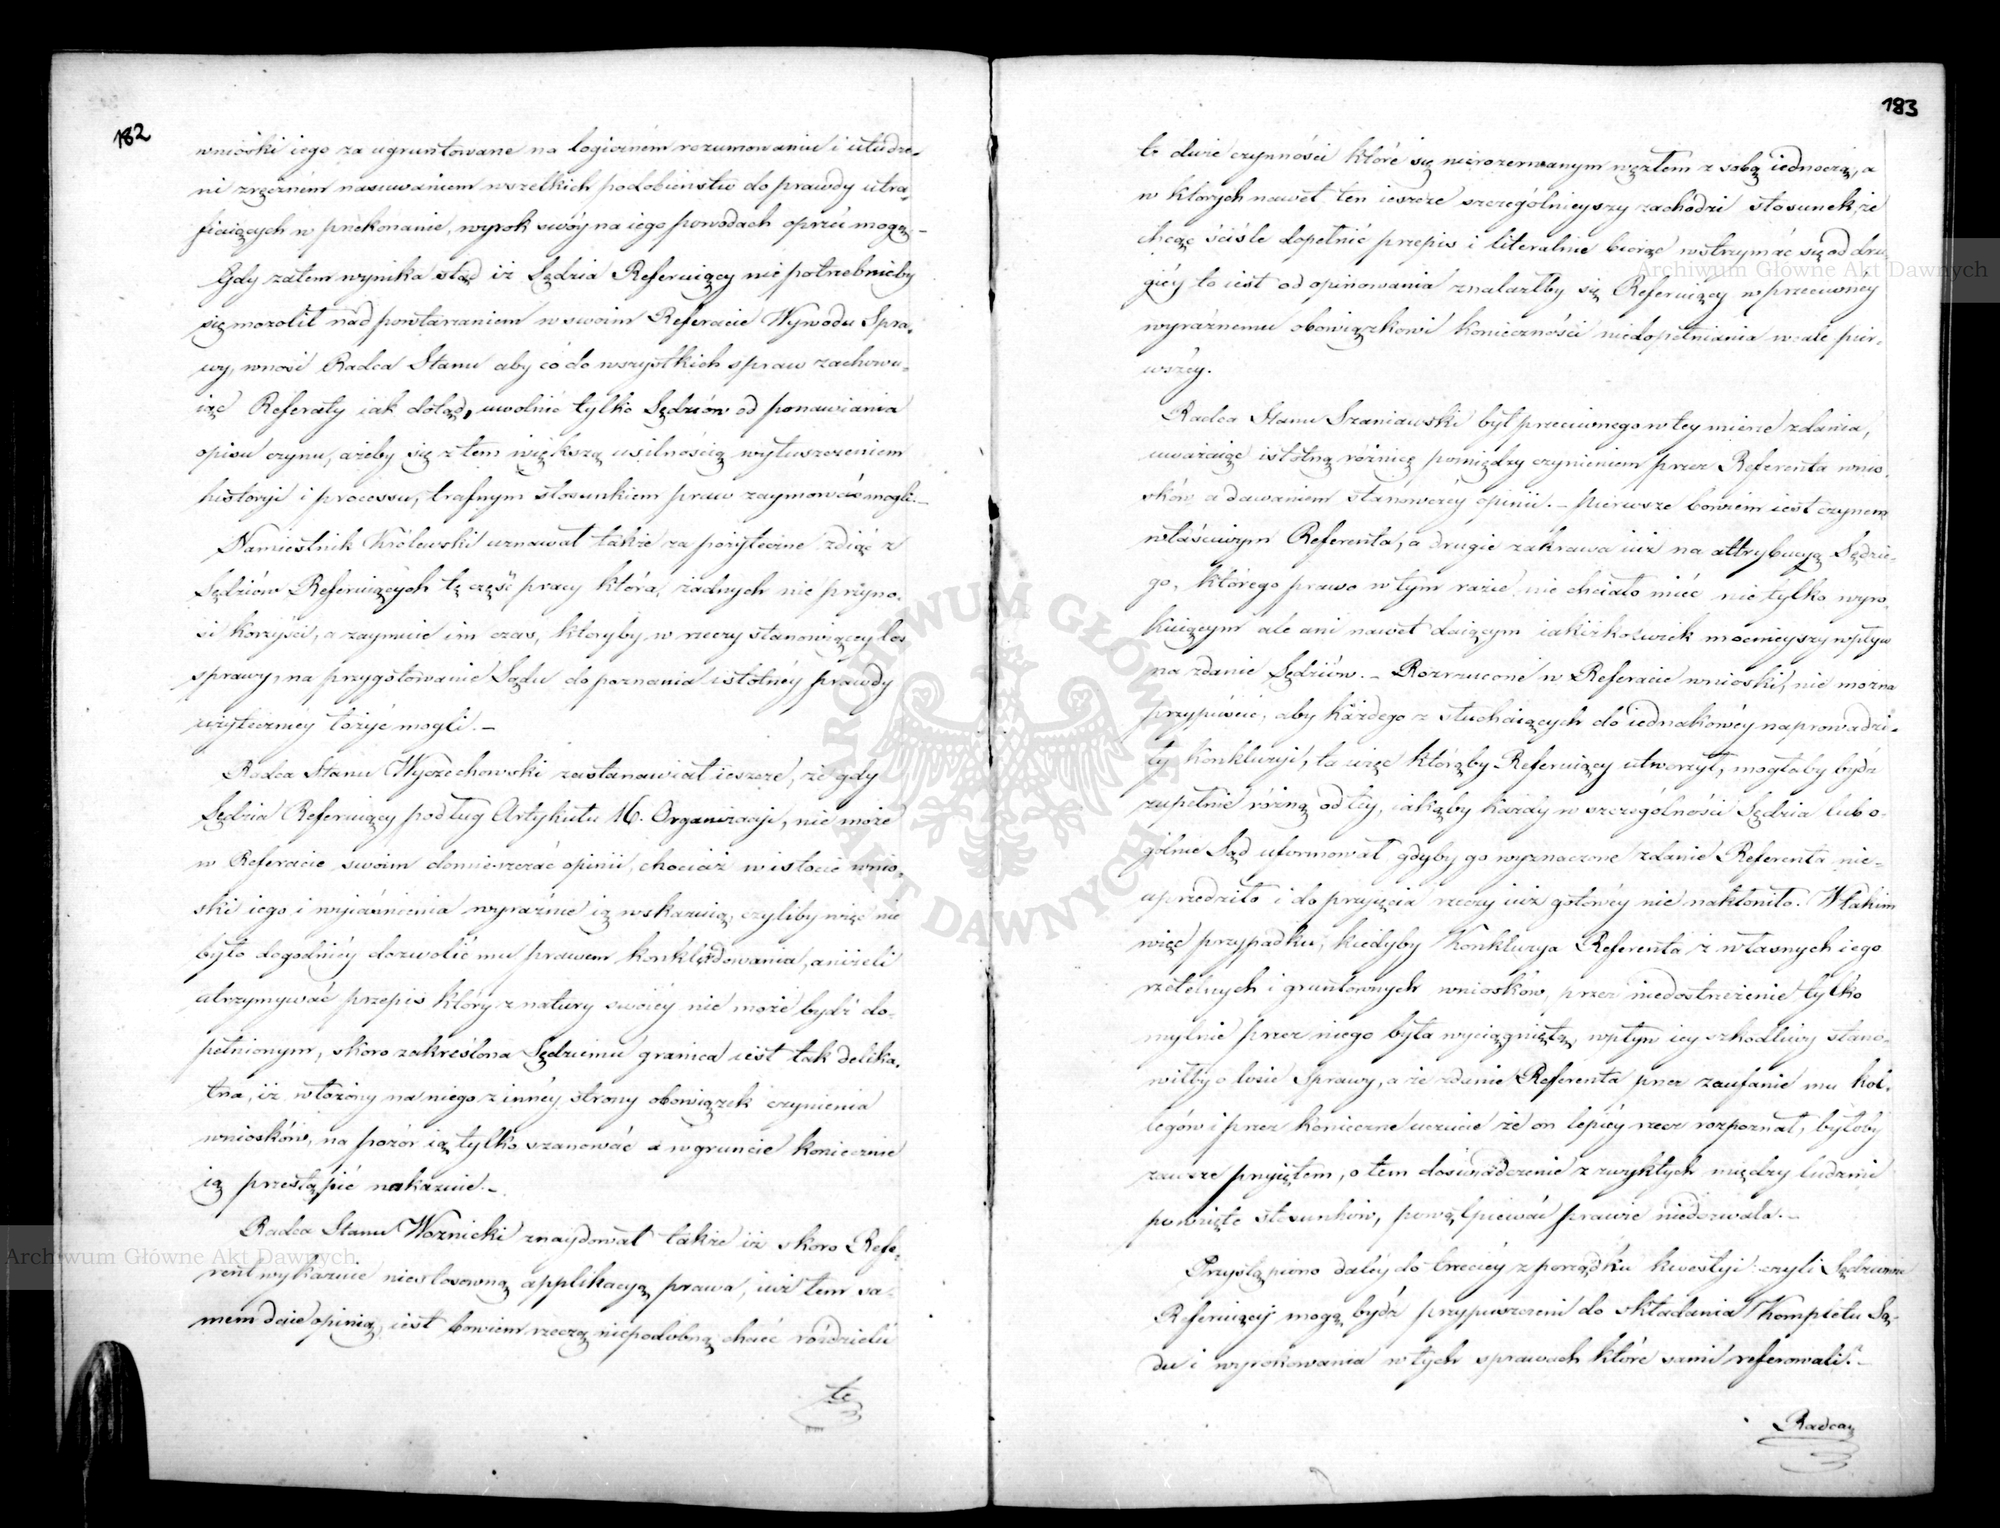 182
wnioski iego za ugruntowane na logiczném rozumowaniu i ułudze-
ni zręczném nasuwaniem wszelkich podobieństw do prawdy utra-
fiaiących w przekonanie, wyrok swóy na iego powodach oprzéć mogą.–
Gdy zatem wynika stąd iż Sędzia Referuiący nie potrzebnieby
się mozolił nad powtarzaniem w swoim Referacie Wywodu Spra-
wy, wnosi Radca Stanu aby co do wszystkich spraw zachowu-
iąc Referaty iak dotąd, uwolnić tylko Sędziów od ponawiania
opisu czynu, ażeby się z tem większą usilnością wyłuszczeniem
historyi i processu, trafnym stosunkiem praw zaymować mogli.–
Namiestnik Królewski uznawał także za pożyteczne zdiąć z
Sędziów Referuiących tę część pracy która, żadnych nie przyno-
si korzyści, a zaymuie im czas, któryby w rzeczy stanowiącey los
sprawy, na przygotowanie Sądu do poznania istotnéy prawdy
użyteczniéy łożyć mogli.–
Radca Stanu Wyczechowski zastanawiał ieszcze, że gdy
Sędzia Referuiący podług Artykułu 16. Organizacyi, nie może
w Referacie swoim domieszczać opinii, chociaż w istocie wnio-
ski iego i wyiaśnienia wyraźnie ią wskazuią, czyliby więc nie
było dogodniéy dozwolić mu prawem konkludowania, aniżeli
utrzymywać przepis który z natury swoiéy nie może bydź do-
pełnionym, skoro zakreślona Sędziemu granica iest tak delika-
tna, iż włożony na niego z innéy strony obowiązek czynienia
wniosków, na pozór ią tylko szanować a w gruncie koniecznie
ią przestąpić nakazuie.–
Radca Stanu Woznicki znaydował także iż skoro Refe-
rent wykazuie niestosowną applikacyą prawa, iuż tem sa-
mem daie opinią, iest bowiem rzeczą niepodobną chcieć rozdzielić
te
183
te dwie czynności które się nierozerwanym węzłem z sobą iednoczą, a
w których nawet ten ieszcze szczególnieyszy zachodzi stosunek, że
chcąc ściśle dopełnić przepis i literalnie biorąc wstrzymać się od dru-
giéy to iest od opinowania znalazłby się Referuiący w przeciwney
wyraźnemu obowiązkowi konieczności niedopełniania wcale pier-
wszéy.
Radca Stanu Szaniawski był przeciwnego w tey mierze zdania,
uważaiąc istotną różnicę pomiędzy czynieniem przez Referenta wnio-
sków, a dawaniem stanowczéy opinii.– Pierwsze bowiem iest czynem
właściwym Referenta, a drugie zakrawa iuż na attrybucyą Sędzie-
go, którego prawo w tym razie, nie chciało mieć nie tylko wyro-
kuiącym ale ani nawet daiącym iakiżkolwiek mocnieyszy wpływ
na zdanie Sędziów.– Rozrzucone w Referacie wnioski, nie można
przypuścić, aby każdego z słuchaiących do iednakowéy naprowadzi-
ły konkluzyi, ta więc którąby Referuiący utworzył, mogłaby bydź
zupełnie różną od tey, iakąby każdy w szczególności Sędzia lub o-
gólnie Sąd uformował, gdyby go wyznaczone zdanie Referenta nie-
uprzedziło i do przyięcia rzeczy iuż gotowéy nie nakłoniło. W takim
więc przypadku, kiedyby Konkluzya Referenta z własnych iego
rzetelnych i gruntownych wniosków, przez niedostrzeżenie tylko
mylnie przez niego była wyciągniętą, wpływ iey szkodliwy stano-
wiłby o losie Sprawy, a że zdanie Referenta przez zaufanie mu kol-
legów i przez konieczne uczucie że on lepiéy rzecz rozpoznał, byłoby
zawsze przyiętem, o tem doświadczenie z zwykłych między ludźmi
powzięte stosunków, powątpiewać prawie niedozwala.–
Przystąpiono daléy do trzeciéy z porządku kwestyi czyli Sędziowie
Referuiący mogą bydź przypuszczeni do składania Kompletu Są-
du i wyrokowania w tych sprawach które sami referowali?–
Radca
ARCHIWUM GŁÓWNE AKT DAWNYCH
Archiwum Główne Akt Dawnych
Archiwum Główne Akt Dawnych